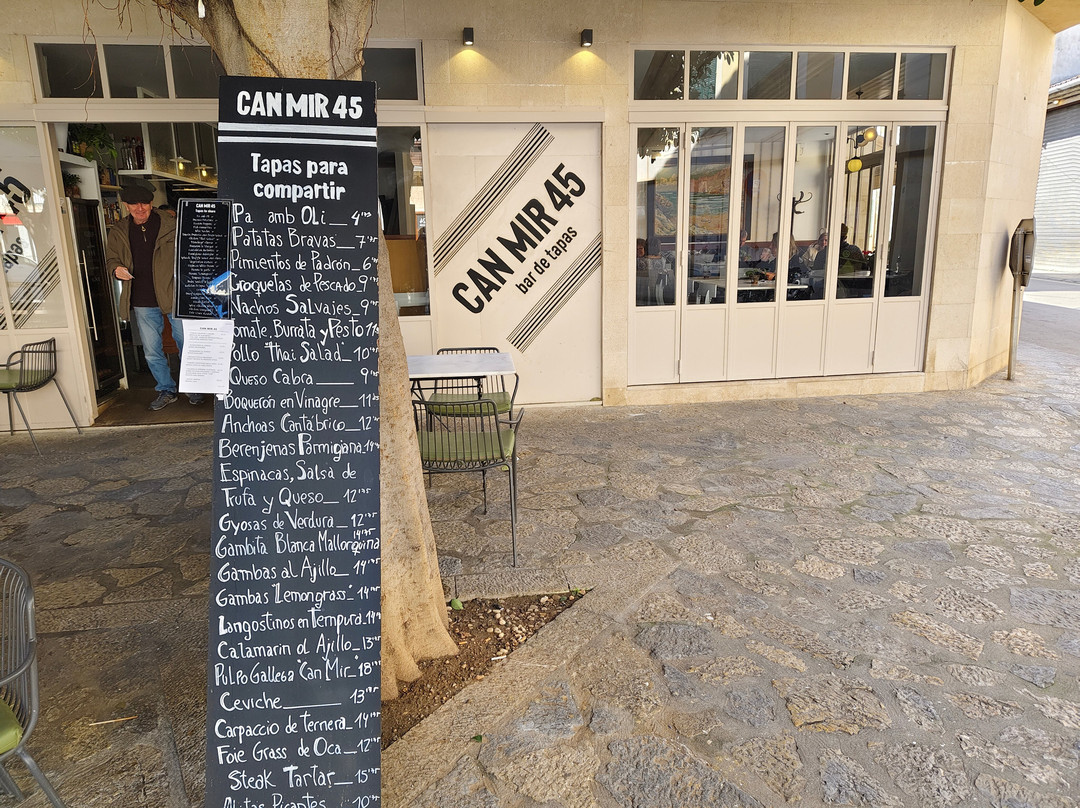 CAN MIR 45
Tapas para
compartir
Pa amb Oli__4'95
Patatas Bravas__7'95
Pimientos de Padrón_6
Croquetas de Pescado_9
Nachos Salvajes_9
Tomate, Burrata y Pesto 11
Pollo "Thai Salad"_10
Queso Cabra ____ 9
Boquerón en Vinagre__11
Anchoas Cantábrico_12
Berenjenas Parmigiana 14
Espinacas, Salsa de
Trufa y Queso__ 12'95
Gyosas de Verdura_ 12'95
Gambita Blanca Mallorquina 14'95
Gambas al Ajillo_ 14
Gambas "Lemongrass"_ 14
Langostinos en Tempura_14
Calamarin al Ajillo_13
Pulpo Gallega "Can Mir"_18
Ceviche_____ 13
Carpaccio de ternera_14
Foie Grass de Oca__12
Steak Tartar__15
Alitas Picantes 10
CAN MIR 45
CAN MIR 45
bar de tapas
45
tapas